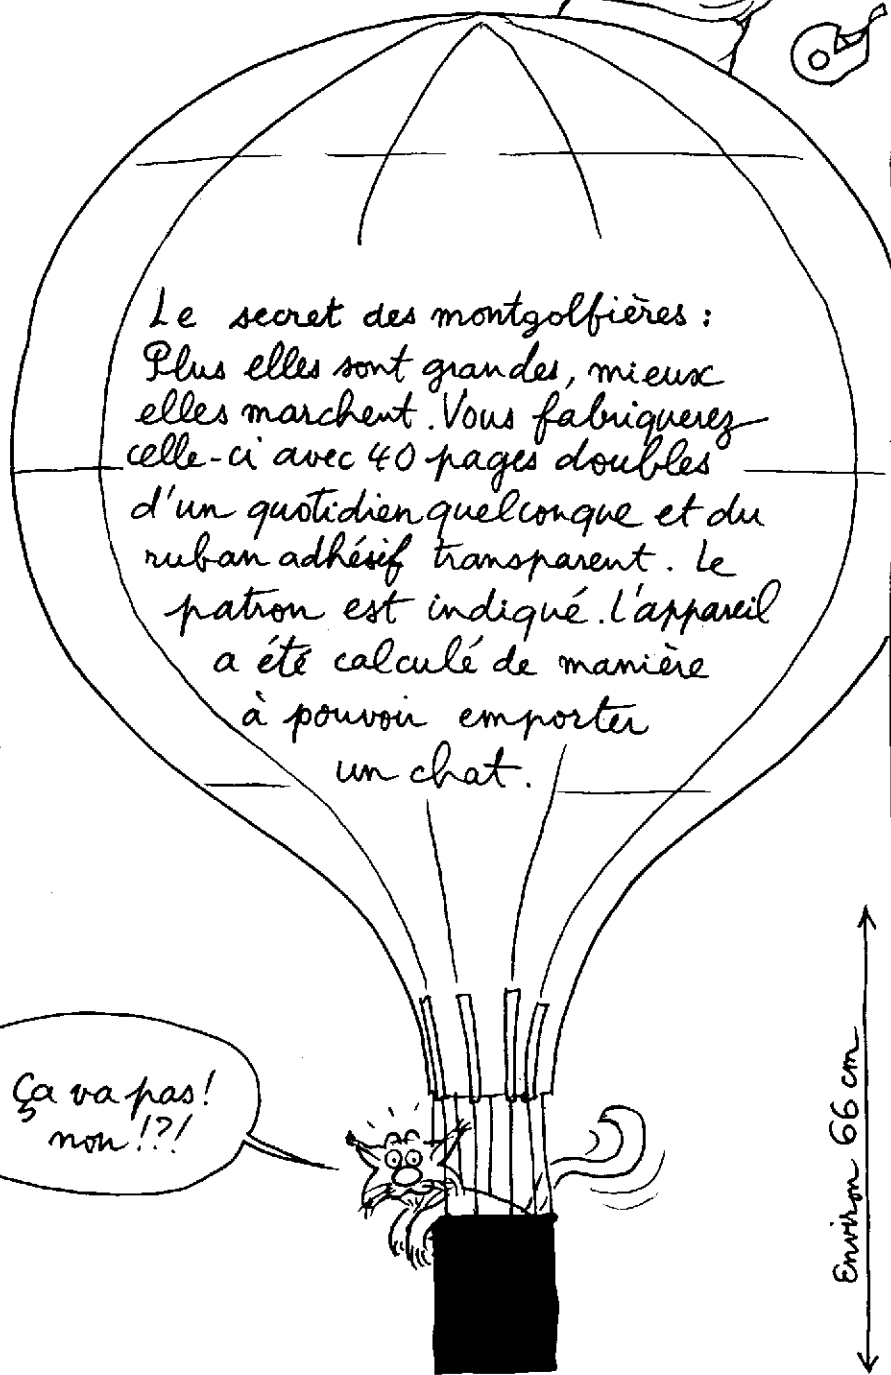 Le secret des montgolfières :
Plus elles sont grandes, mieux
elles marchent. Vous fabriquerez
celle-ci avec 40 pages doubles
d'un quotidien quelconque et du
ruban adhésif transparent. Le
patron est indiqué. L'appareil
a été calculé de manière
à pouvoir emporter
un chat.
Ça va pas!
non!?!
Environ 66 cm